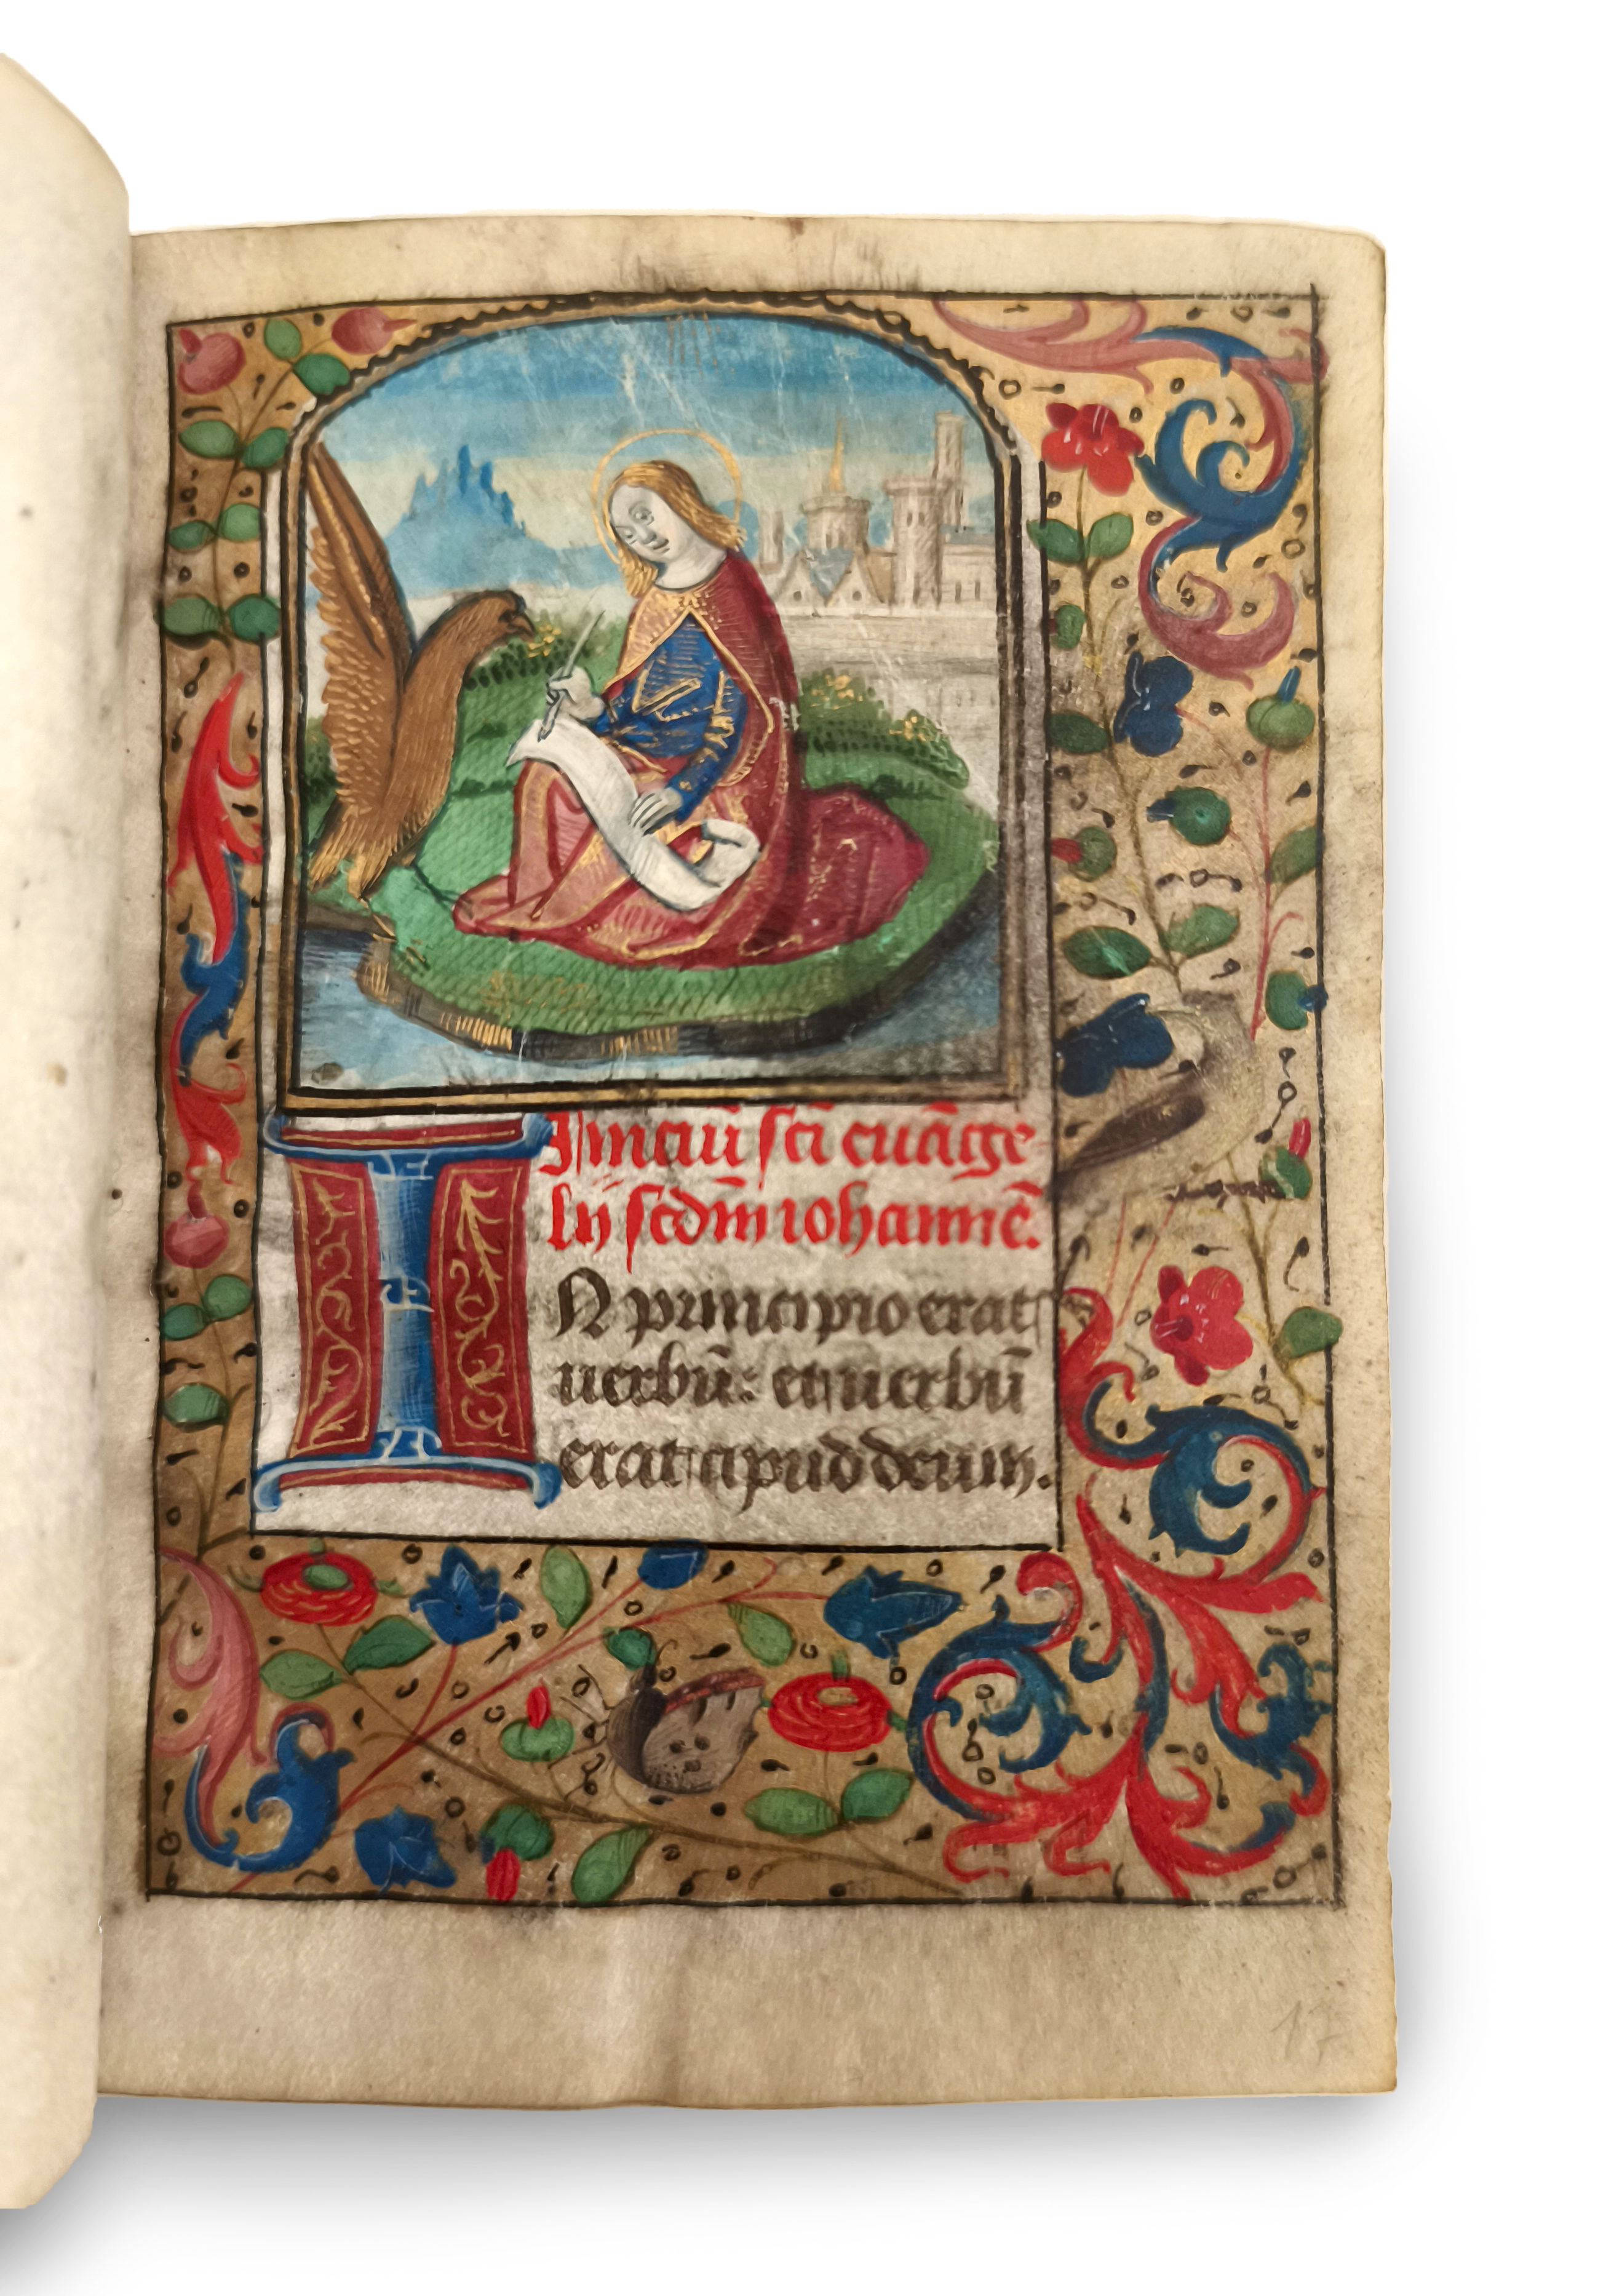 Iniciū sci euāge
lij scdm iohannē.
IN principio erat
uerbū: et uerbū
erat apud deum.
17